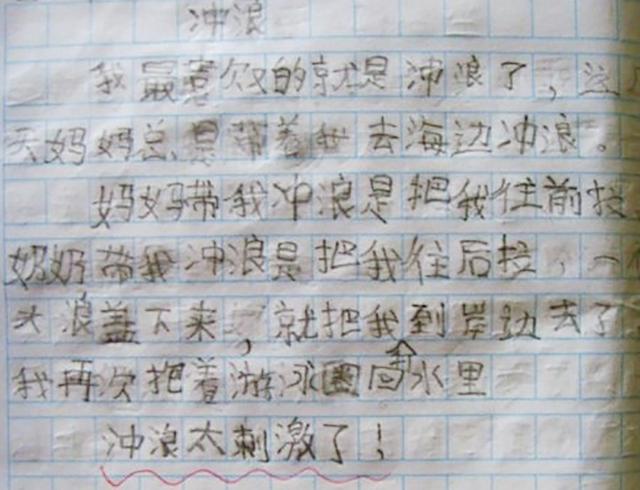 冲浪
我最喜欢的就是冲浪了，这
天妈妈总是带着我去海边冲浪。
妈妈带我冲浪是把我往前拉
奶奶带我冲浪是把我往后拉，一
头浪盖下来，就把我到岸边去了
我再次把着游泳圈回会水里
冲浪太刺激了！